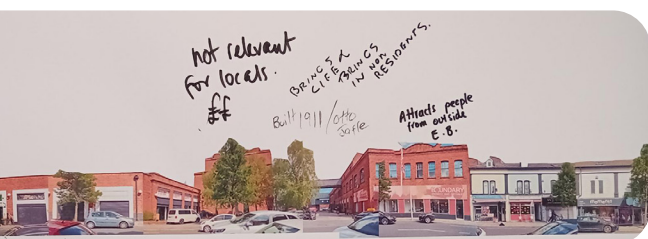 not relevant
for locals.
££
BRINGS
LIFE &
BRINGS
IN NON
RESIDENTS.
Built 1911 / Otto
Attracts people
from outside
E.B.
BOUNDARY